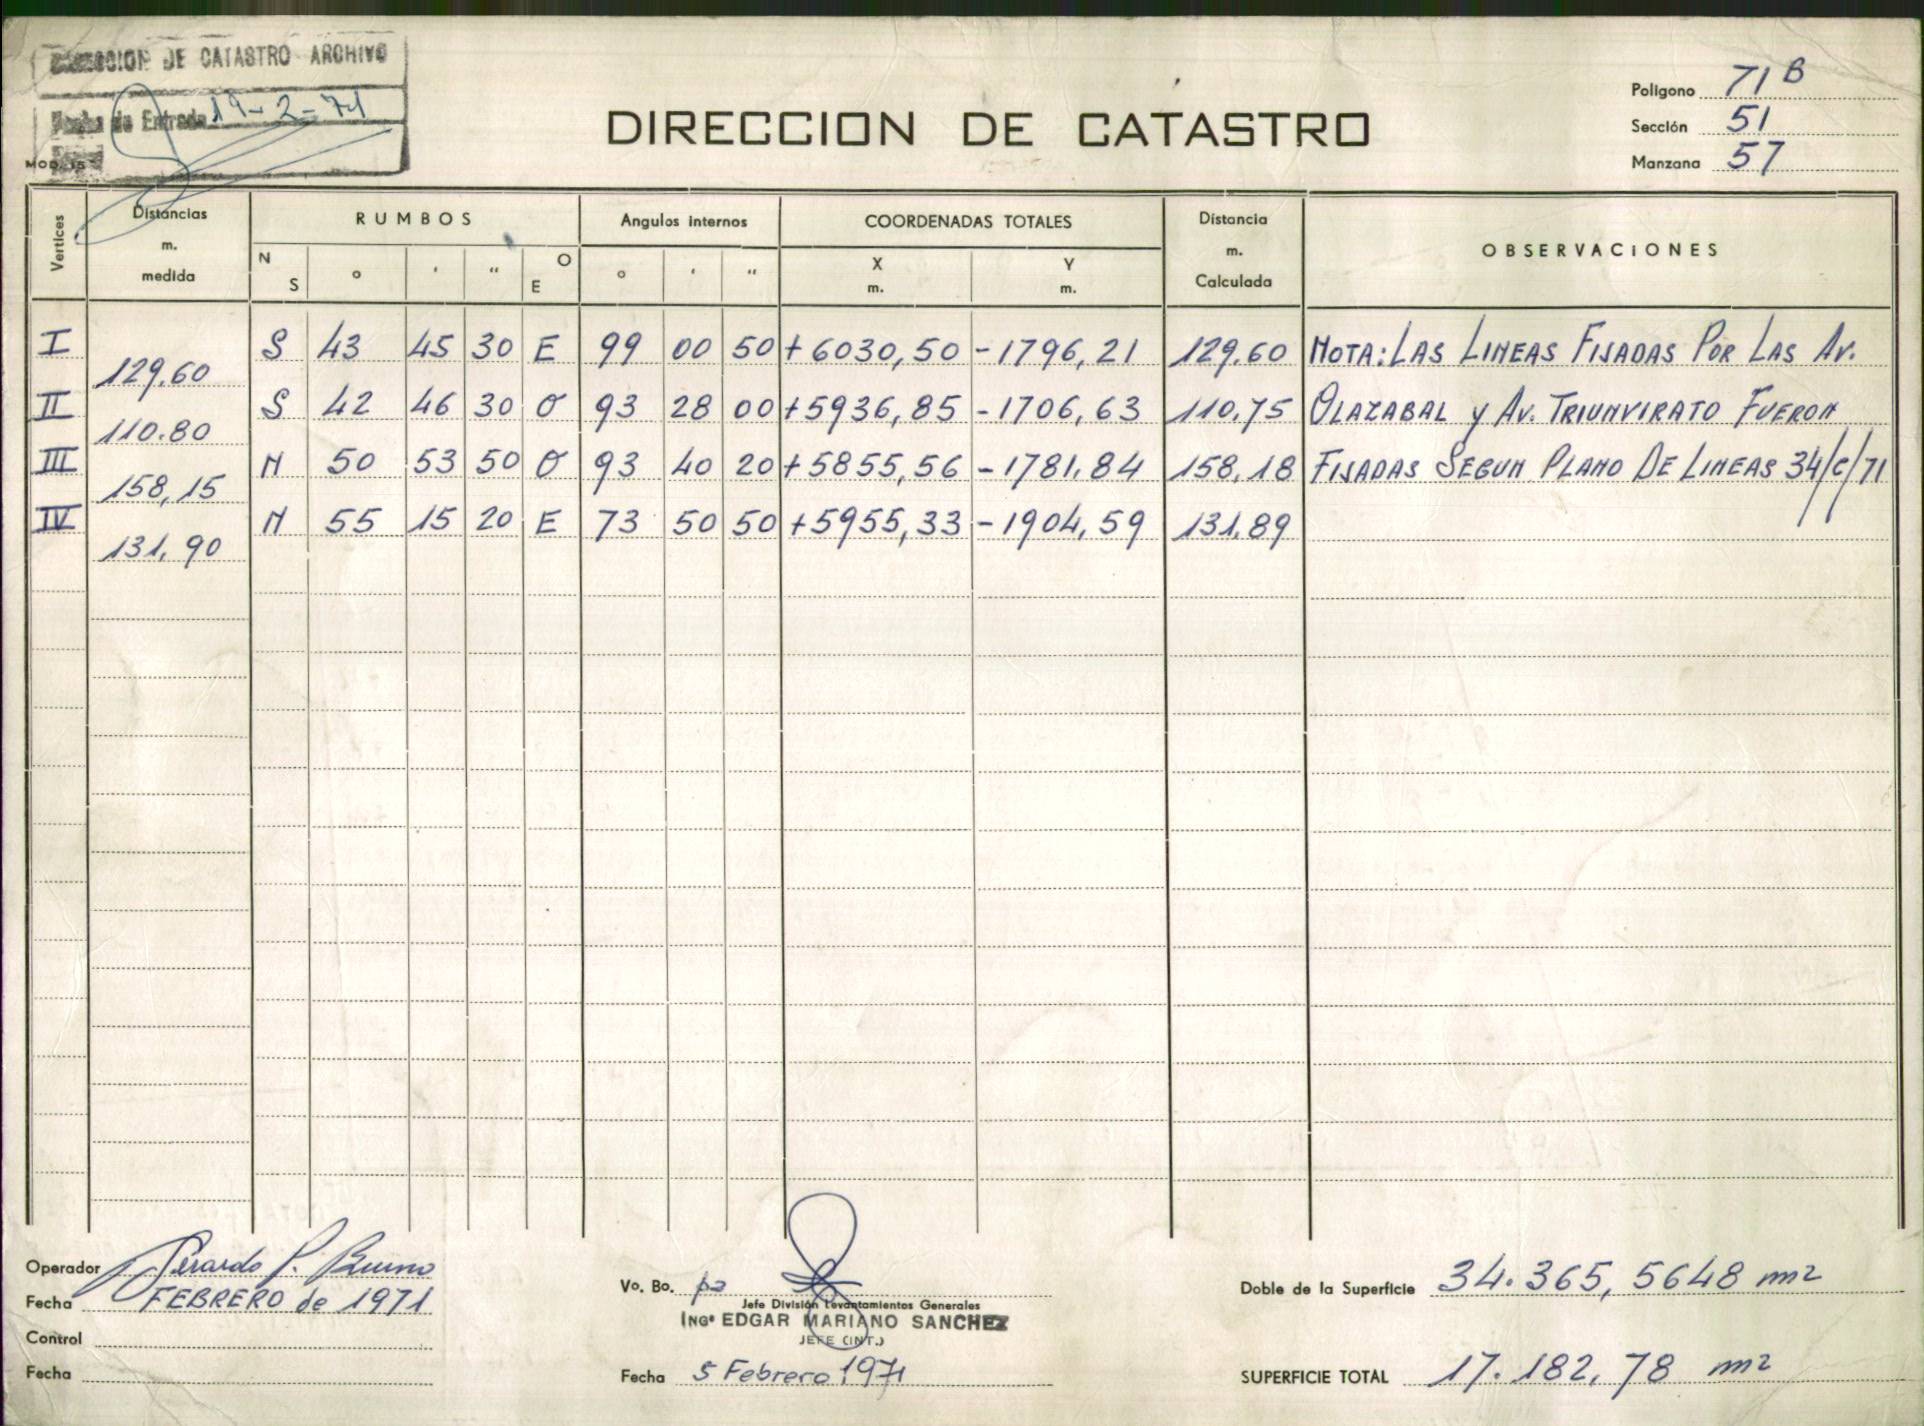 DIRECCION DE CATASTRO ARCHIVO
Fecha de Entrada 19-2-71
MOD. 15
DIRECCION DE CATASTRO
Poligono 71 B
Sección 51
Manzana 57
Vertices
Distancias m. medida
RUMBOS
N S ° ' " O E
Angulos internos
° ' "
COORDENADAS TOTALES
X m. Y m.
Distancia m. Calculada
OBSERVACIONES
I S 43 45 30 E 99 00 50 +6030,50 -1796,21 129.60 NOTA: LAS LINEAS FIJADAS POR LAS AV.
129.60
II S 42 46 30 O 93 28 00 +5936,85 -1706,63 110.75 OLAZABAL y AV. TRIUNVIRATO FUERON
110.80
III N 50 53 50 O 93 40 20 +5855,56 -1781.84 158,18 FIJADAS SEGUN PLANO DE LINEAS 34/C/71
158,15
IV N 55 15 20 E 73 50 50 +5955,33 -1904,59 131.89
131,90
Operador Gerardo P. Bueno
Fecha FEBRERO de 1971
Control
Fecha
Vo. Bo. pa
Jefe División Levantamientos Generales
ING° EDGAR MARIANO SANCHEZ
JEFE (INT.)
Fecha 5 Febrero 1971
Doble de la Superficie 34.365,5648 m2
SUPERFICIE TOTAL 17.182,78 m2